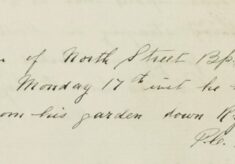 of North Street Bp
Monday 17th inst he
om his garden down R
P.C.